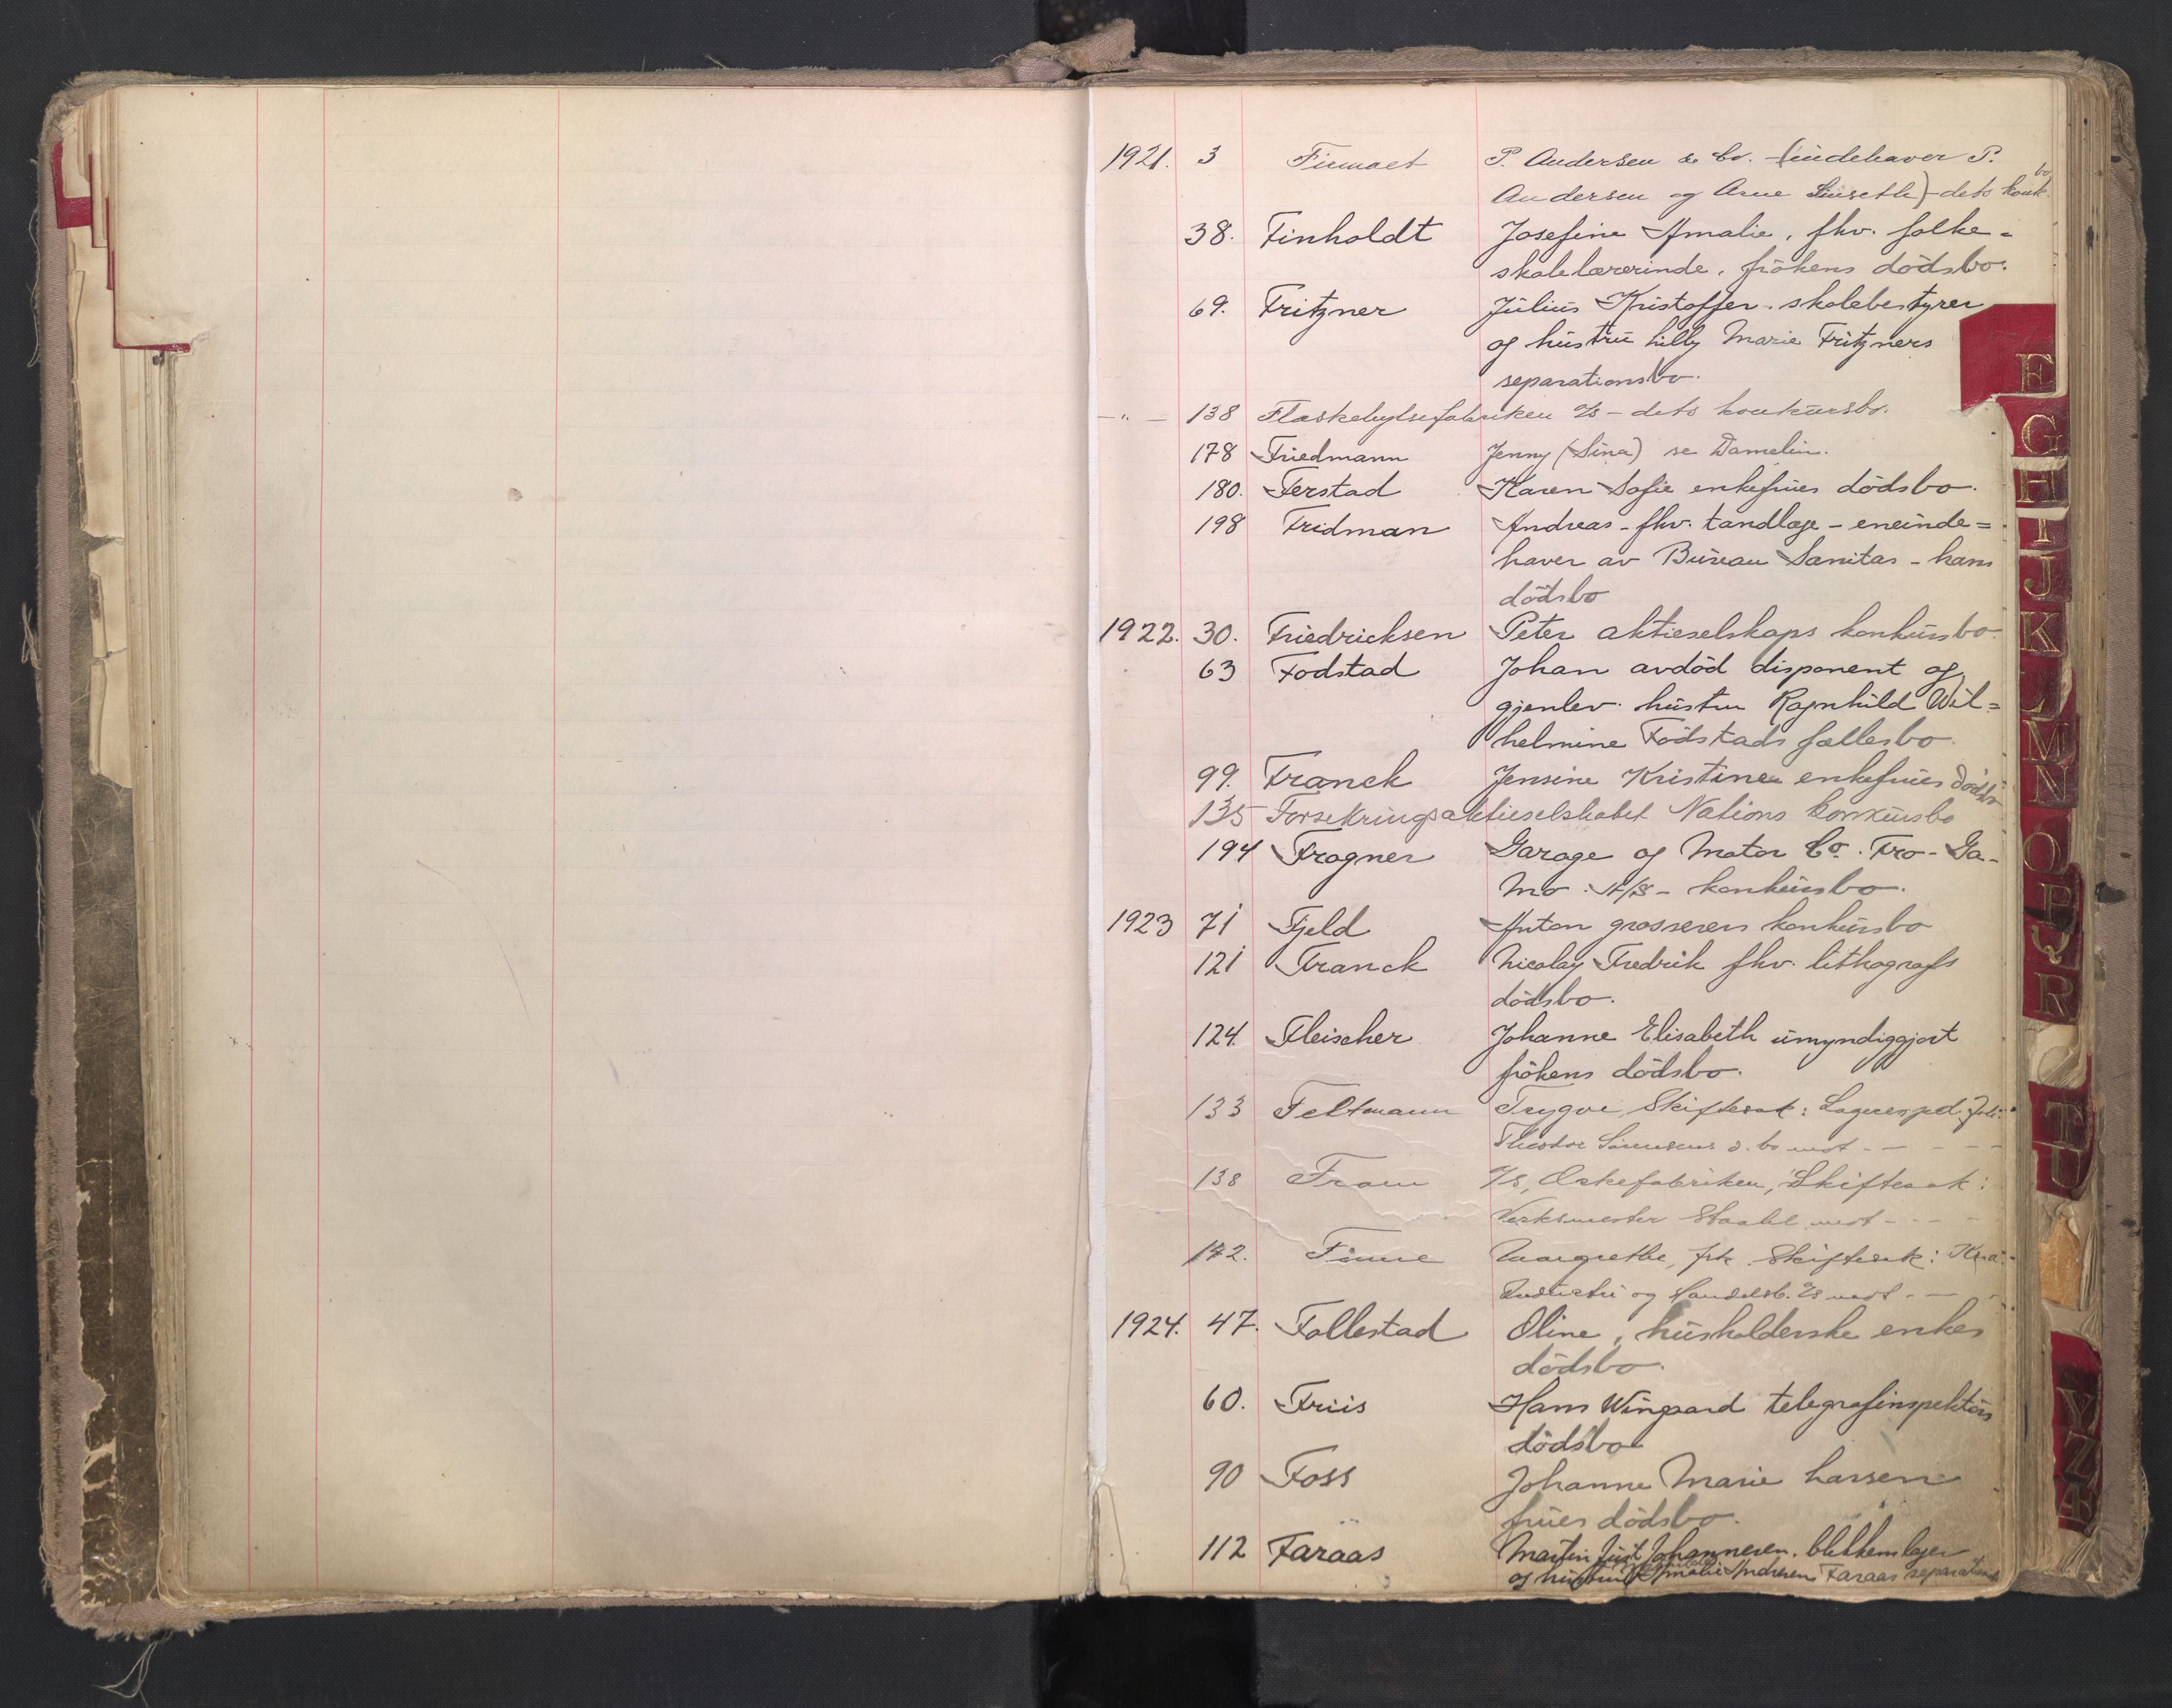 1921. 3 Firmaet P. Andersen & Co. (indehaver P.
Andersen og Arne Linseth) - dets konk. bo
38. Finholdt Josefine Amalie, fhv. folke=
skolelærerinde, frökens dödsbo.
69. Fritzner Julius Kristoffer. skolebestyrer
og hustru Lilly Marie Fritzners
separationsbo.
— " — 138 Flaskehylsefabriken A/S - dets konkursbo.
178 Friedmann Jenny (Sina) se Damelin.
180. Ferstad Karen Sofie enkefrues dödsbo.
198 Fridman Andreas - fhv. tandlæge - eneinde=
haver av Bureau Sanitas - hans
dödsbo
1922. 30. Friedricksen Peter aktieselskaps konkursbo.
63 Fodstad Johan avdöd disponent og
gjenlev. hustru Ragnhild Wil=
helmine Fodstads fællesbo.
99. Franck Jensine Kristine enkefrues dödsbo
135 Forsekringsaktieselskabet Nations konkursbo
194 Frogner Garage og Motor Co. Fro-Ga-
Mo. A/S - konkursbo.
1923 71 Fjeld Anton grosserers konkursbo
121 Franck Nicolay Fredrik fhv. lithografs
dödsbo.
124. Fleischer Johanne Elisabeth umyndiggjort
frökens dödsbo.
133 Feltmann Trygve, Skiftesak: Lagerexped. Joh.
Theodor Sörensens d. bo mot - — - — -
138 Fram A/S, Eskefabriken, Skiftesak:
Verksmester Staahl mot - - - -
142. Finne Margrethe, frk. Skiftesak: Kra.
Industri og Handelsb. A/S mot - — -
1924. 47. Follestad Oline, husholderske enkes
dödsbo.
60. Friis Hans Wingaard telegrafinspektörs
dödsbo
90 Foss Johanne Marie Larsen
frues dödsbo.
112 Faraas Martin Just Johannesen. blikkenslager
og hustru Amalie Andresen Faraas separations
E
G
H
I
J
K
L
M
N
O
P
Q
R
T
U
V
Z